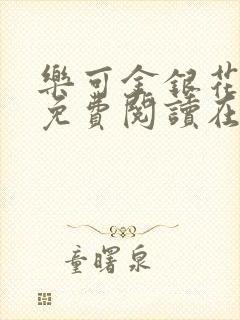 樂可金銀花
免費閱讀在
童曙泉